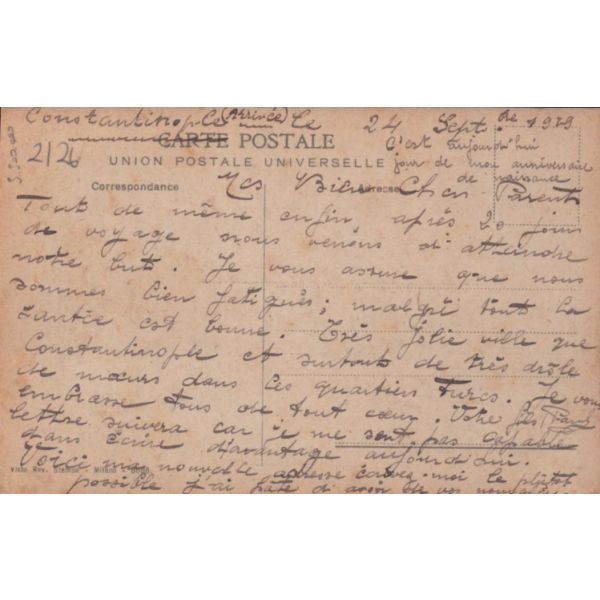 Constantinople (Arrivée) le 24 Sept.bre 1929
CARTE POSTALE
2/26
C'est aujourd'hui
jour de mon anniversaire
de naissance
UNION POSTALE UNIVERSELLE
Correspondance
Adresse
Mes Bien Chers Parents
Tout de même enfin après 20 jours
de voyage nous venons d'atteindre
notre but. Je vous assure que nous
sommes bien fatigués; malgré tout la
santée est bonne. Très jolie ville que
Constantinople et surtout de très drôle
de mœurs dans les quartiers Turcs. Je vous
embrasse tous de tout cœur. Votre fils
lettre suivera car je me sent pas capable
dans écrire d'avantage aujourd'hui.
Voici ma nouvelle adresse écrivez-moi le plutôt
possible j'ai hâte d'avoir de vos nouvelles